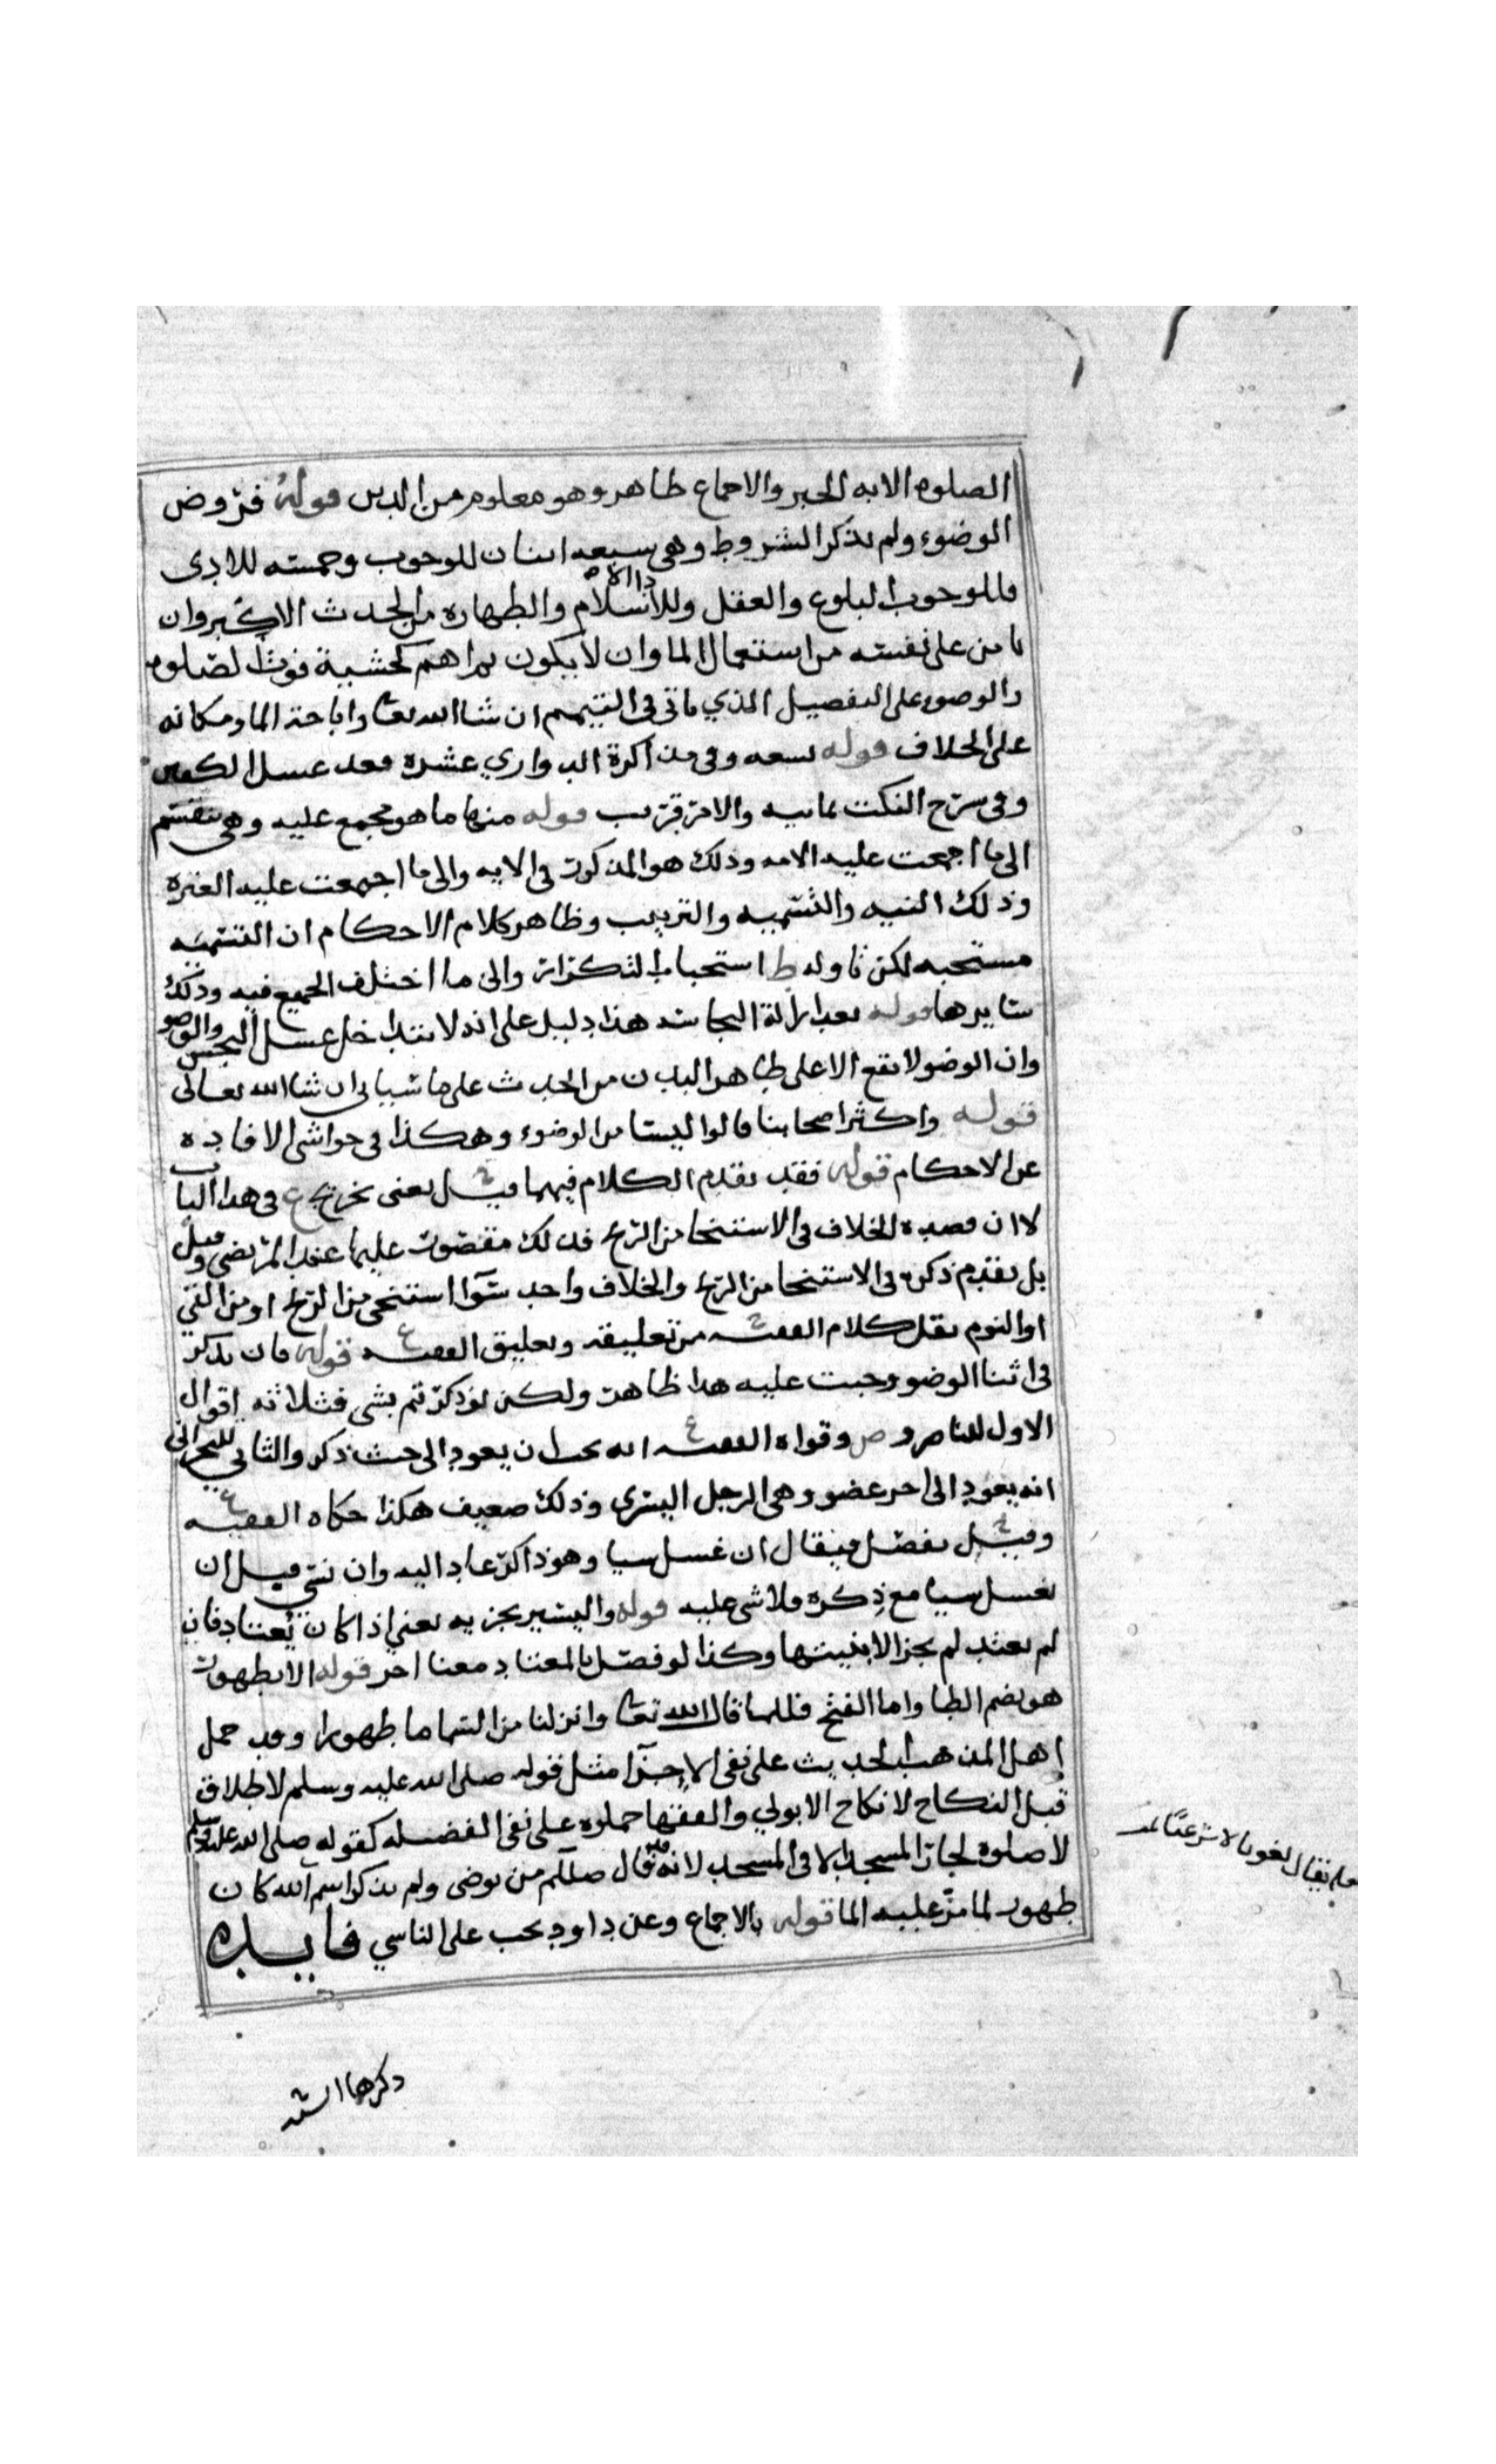 الصلوه الايه الخبر والاجماع ظاهر وهو معلوم من الدين قوله فروض
الوضوء ولم يذكر الشروط وهي سبعه اثنان للوجوب وخمسه للادى
فللوجوب البلوغ والعقل وللاداء الاسلام والطهاره من الحدث الاكبر وان
يامن على نفسه من استعمال الما وان لا يكون ثم اهم كخشية فوت الصلوه
والوضوء على التفصيل الذي ياتي في التيمم ان شا الله تعا واباحة الما ومكانه
على الخلاف قوله تسعه وفي مذاكرة الدواري عشره فعد غسل الكفين
وفي شرح النكت ثمانيه والامر قريب قوله منها ما هو مجمع عليه وهي تنقسم
الى ما اجمعت عليه الامه وذلك هو المذكور في الايه والى ما اجمعت عليه العتره
وذلك النيه والتسميه والترتيب وظاهر كلام الاحكام ان التسميه
مستحبه لكن تاوله ط استحباب التكرار والى ما اختلف الجميع فيه وذلك
سايرها قوله بعد ازالة النجاسه هذا دليل على انه لا يتداخل غسل النجس والوضو
وان الوضو لا يقع الا على طاهر البدن من الحدث على ما سياتي ان شا الله تعالى
قوله واكثر اصحابنا قالوا ليستا من الوضوء وهكذا في حواشي الافاده
عن الاحكام قوله فقد تقدم الكلام فيهما قيل ح يعني تخريج ع في هذا الباب
لا ان قصده الخلاف في الاستنجا من الريح فذلك مقصور عليها عند المرتضى وقيل
بل تقدم ذكره في الاستنجا من الريح والخلاف واحد سوا استنجى من الريح او من القي
او النوم نقل كلام الفقيه ح من تعليقه وتعليق الفقيه ع قوله فان ذكر
في اثنا الوضو وجبت عليه هذا ظاهر ولكن لو ذكر ثم نسي فثلاثه اقوال
الاول للناصر و ص وقواه الفقيه ع انه يجب ان يعود الى حيث ذكر والثاني للبحراني
انه يعود الى اخر عضو وهي الرجل اليسرى وذلك ضعيف هكذا حكاه الفقيه ع
وقيل ح يفصل فيقال ان غسل سيا وهو ذاكر عاد اليه وان نسي قبل ان
يغسل سيا مع ذكره فلا شى عليه قوله واليسير يجزيه يعني اذا كان يعتاد فان
لم يعتد لم يجز الا بنيتها وكذا لو فصل بالمعتاد معنا اخر قوله الا بطهور
هو بضم الطا واما الفتح فللما قال الله تعا وانزلنا من السما ما طهورا وقد حمل
اهل المذهب الحديث على نفي الاجزا مثل قوله صلى الله عليه وسلم لا طلاق
قبل النكاح لا نكاح الا بولي والفقها حملوه على نفي الفضيله كقوله صلى الله عليه وسلم
لا صلوة لجار المسجد الا في المسجد لانه قد قال صللم من توضى ولم يذكر اسم الله كان
طهور لما مر عليه الما قوله بالاجماع وعن داود يجب على الناسي فايده
ذكرها